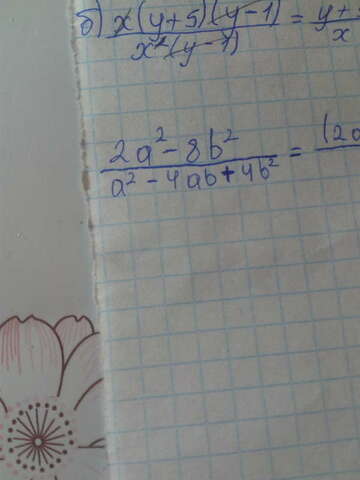 б) x(y+5)(y-1)/x²(y-1) = y+5/x
2a²-8b²/a²-4ab+4b² = (2a